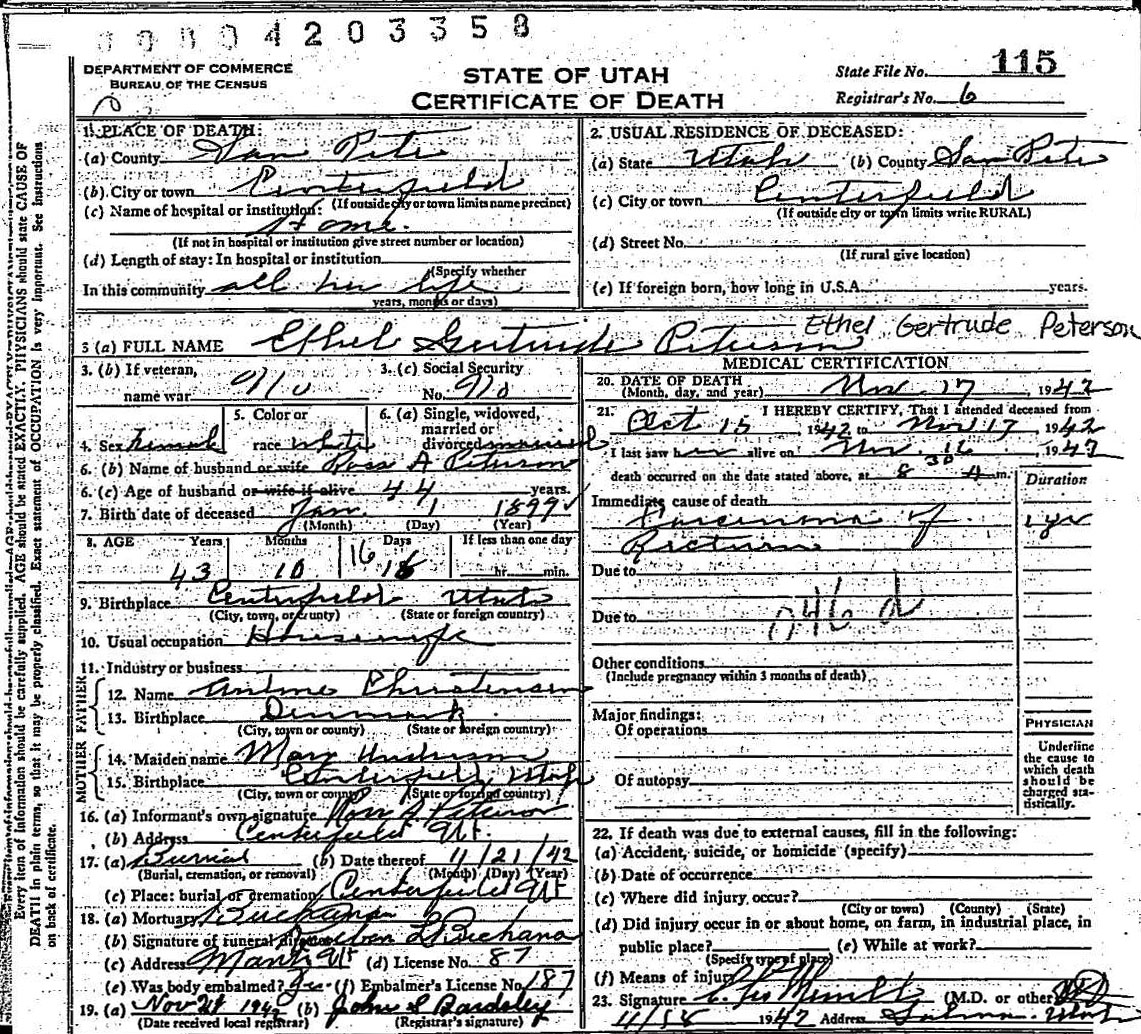 0 0 8 0 4 2 0 3 3 5 8
DEPARTMENT OF COMMERCE
BUREAU OF THE CENSUS
STATE OF UTAH
CERTIFICATE OF DEATH
State File No. 115
Registrar's No. 6
1. PLACE OF DEATH:
(a) County San Pete
(b) City or town Centerfield
(If outside city or town limits name precinct)
(c) Name of hospital or institution:
Home.
(If not in hospital or institution give street number or location)
(d) Length of stay: In hospital or institution
(Specify whether
In this community all her life
years, months or days)
2. USUAL RESIDENCE OF DECEASED:
(a) State Utah (b) County San Pete
(c) City or town Centerfield
(If outside city or town limits write RURAL)
(d) Street No.
(If rural give location)
(e) If foreign born, how long in U.S.A. years.
3 (a) FULL NAME Ethel Gertrude Peterson Ethel Gertrude Peterson
3. (b) If veteran,
name war no
3. (c) Social Security
No. no
4. Sex Female
5. Color or
race White
6. (a) Single, widowed,
married or
divorced married
6. (b) Name of husband or wife Ross A Peterson
6. (c) Age of husband or wife if alive 44 years.
7. Birth date of deceased Jan. 1 1899
(Month) (Day) (Year)
8. AGE Years Months Days If less than one day
43 10 16 16 hr. min.
9. Birthplace Centerfield Utah
(City, town, or county) (State or foreign country)
10. Usual occupation Housewife
11. Industry or business
FATHER
12. Name Christensen
13. Birthplace Denmark
(City, town or county) (State or foreign country)
MOTHER
14. Maiden name Mary
15. Birthplace Centerfield Utah
(City, town or county) (State or foreign country)
16. (a) Informant's own signature Ross A Peterson
(b) Address Centerfield Ut.
17. (a) Burial (b) Date thereof 11/21/42
(Burial, cremation, or removal) (Month) (Day) (Year)
(c) Place: burial or cremation Centerfield Ut
18. (a) Mortuary Buchanan
(b) Signature of funeral director
(c) Address Manti Ut (d) License No. 87
(e) Was body embalmed? Yes (f) Embalmer's License No. 187
19. (a) Nov 21 1942 (b) John S Bardsley
(Date received local registrar) (Registrar's signature)
MEDICAL CERTIFICATION
20. DATE OF DEATH
(Month, day, and year) Nov 17, 1942
21. I HEREBY CERTIFY, That I attended deceased from
Oct 15 1942 to Nov 17, 1942
I last saw her alive on Nov. 16, 1942
death occurred on the date stated above, at 8 30 A m.
Duration
Immediate cause of death
Carcinoma of 1 yr
Rectum
Due to
Due to 046 d
Other conditions
(Include pregnancy within 3 months of death)
Major findings:
Of operations
Of autopsy
PHYSICIAN
Underline
the cause to
which death
should be
charged sta-
tistically.
22. If death was due to external causes, fill in the following:
(a) Accident, suicide, or homicide (specify)
(b) Date of occurrence
(c) Where did injury occur?
(City or town) (County) (State)
(d) Did injury occur in or about home, on farm, in industrial place, in
public place? (e) While at work?
(Specify type of place)
(f) Means of injury
23. Signature (M.D. or other)
1942 Address Salina Utah
Every item of information should be carefully supplied. AGE should be stated EXACTLY. PHYSICIANS should state CAUSE OF
DEATH in plain terms, so that it may be properly classified. Exact statement of OCCUPATION is very important. See instructions
on back of certificate.